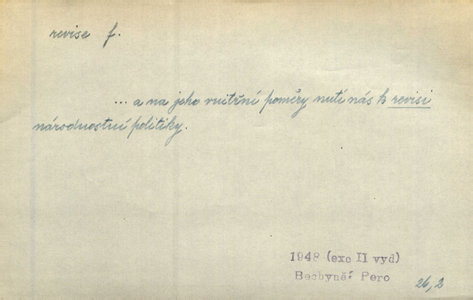 revise f.
... a na jeho vnitřní poměry nutí nás k revisi
národnostní politiky.
1948 (exc II vyd)
Bechyně: Pero
26,2